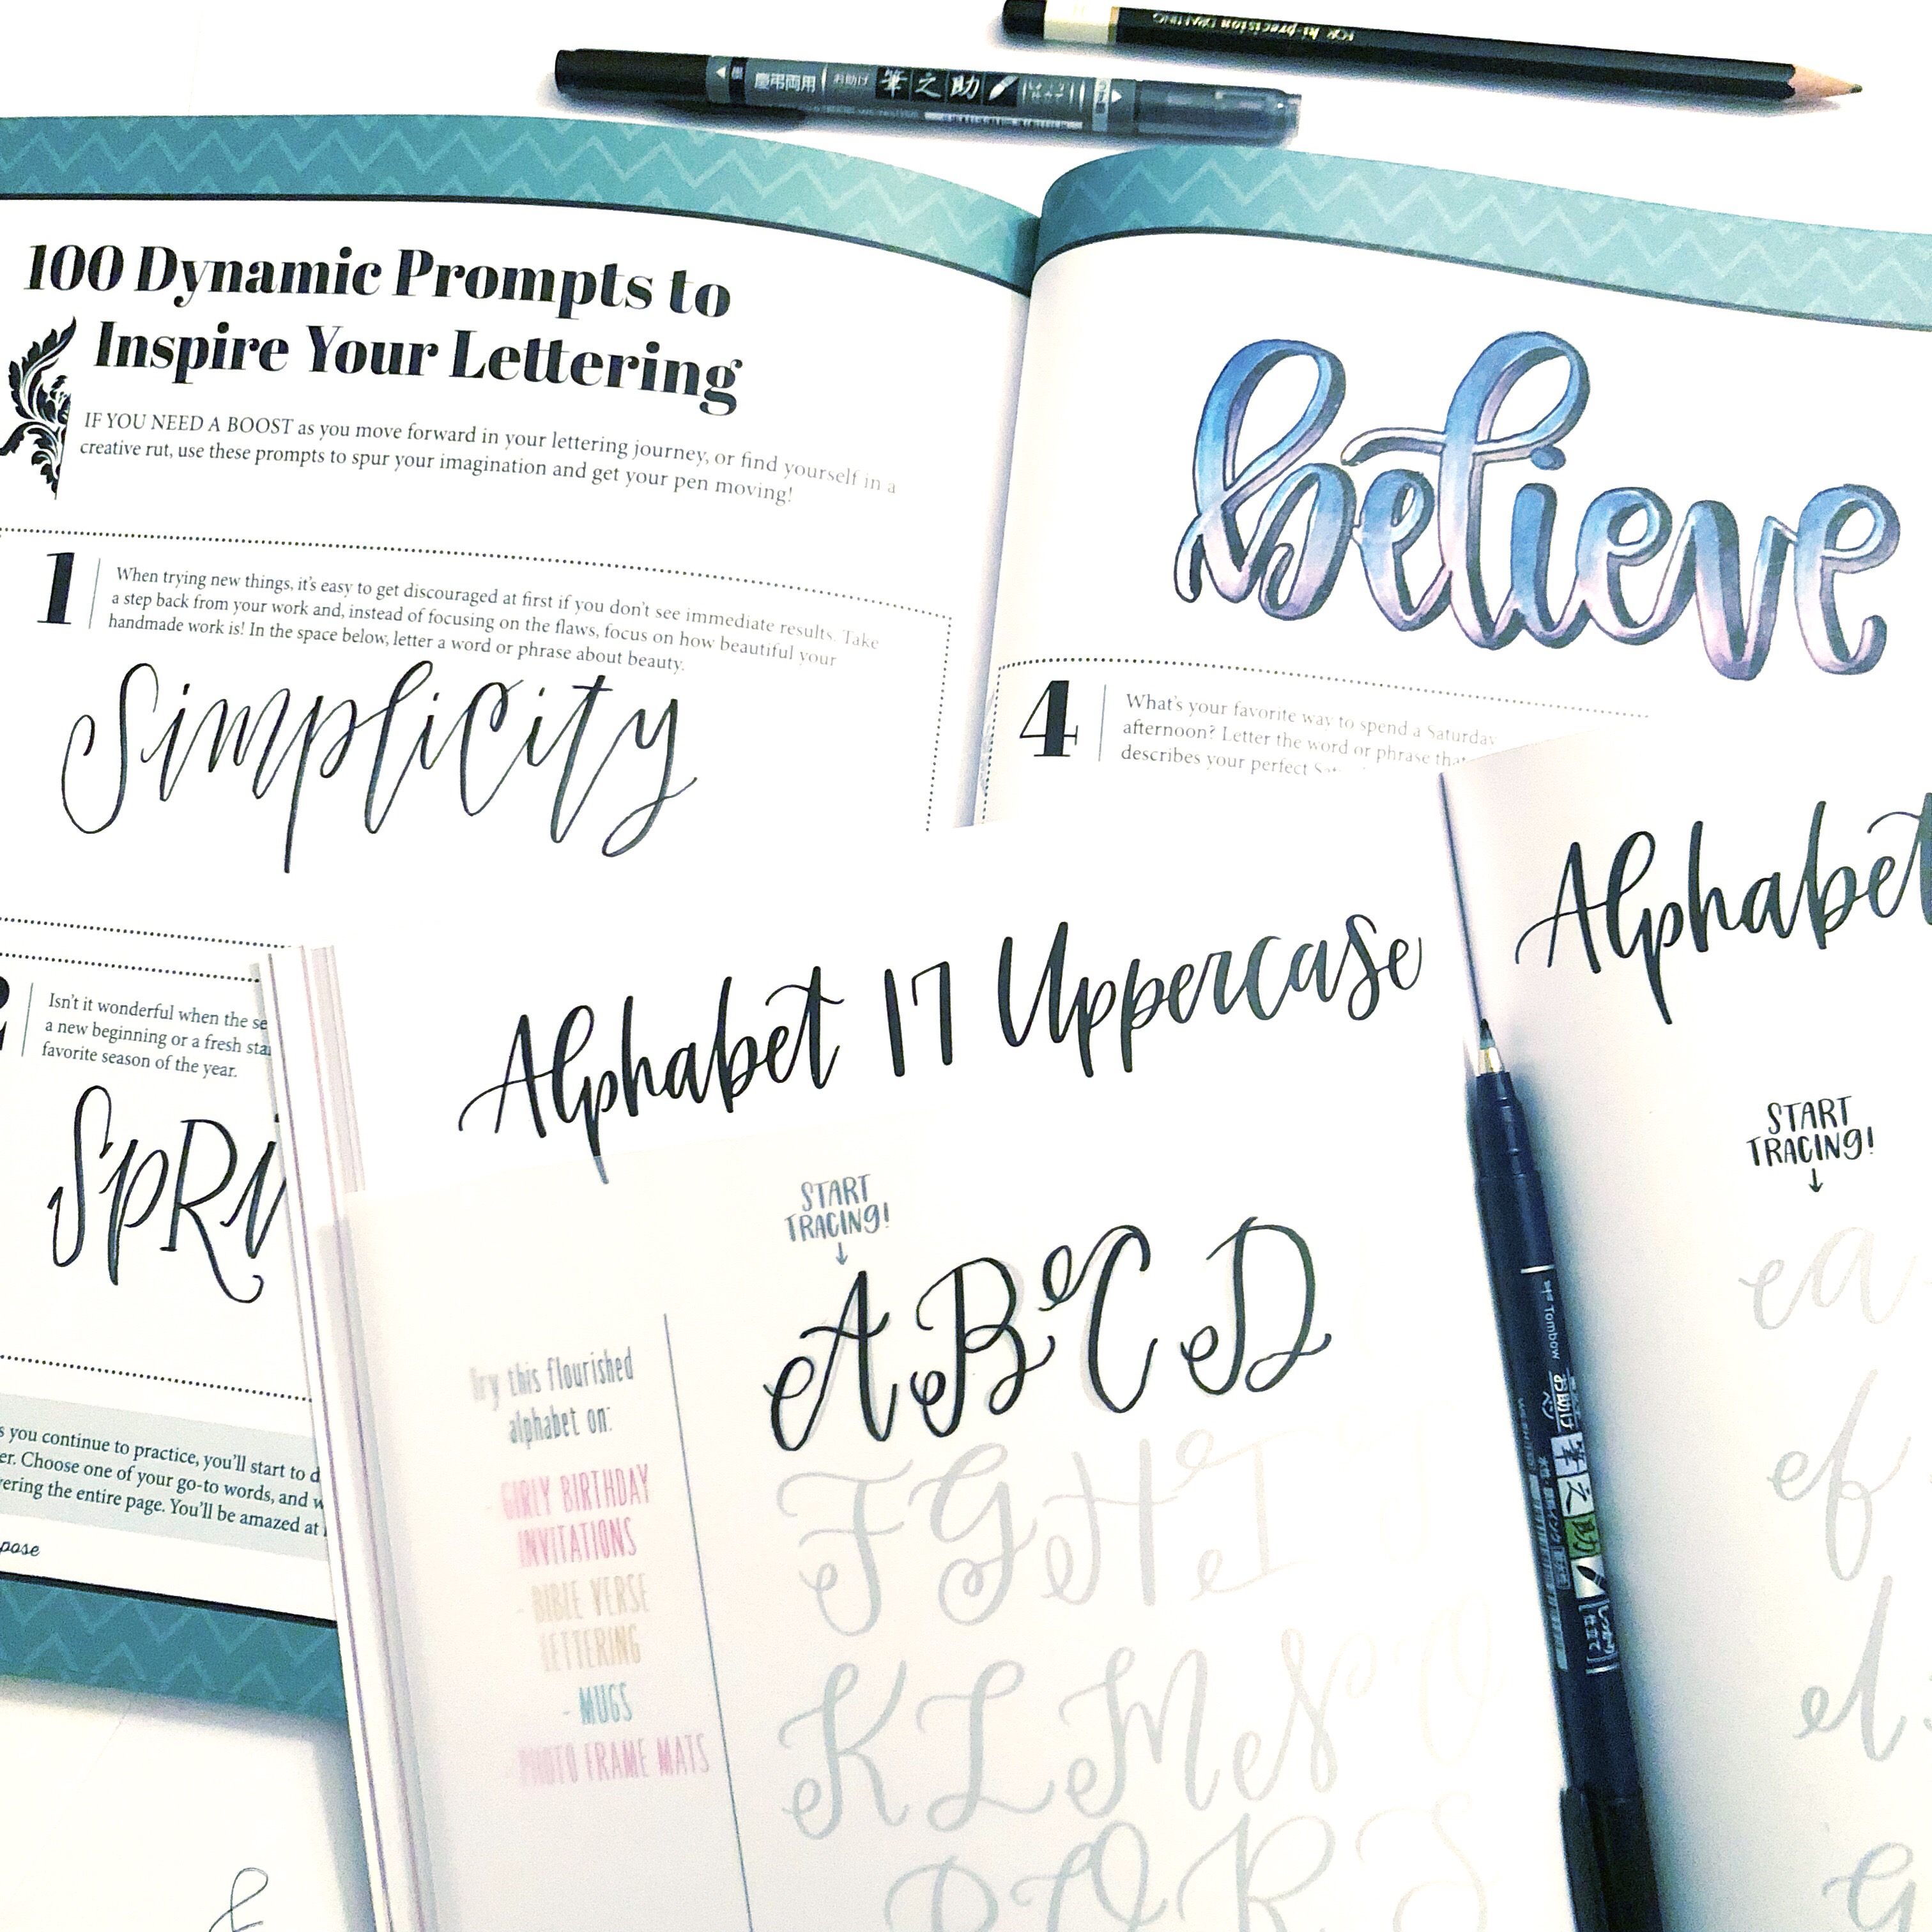 FOR hi-precision DRAFTING
慶弔両用 お助け 筆之助
100 Dynamic Prompts to
Inspire Your Lettering
IF YOU NEED A BOOST as you move forward in your lettering journey, or find yourself in a
creative rut, use these prompts to spur your imagination and get your pen moving!
1
When trying new things, it's easy to get discouraged at first if you don't see immediate results. Take
a step back from your work and, instead of focusing on the flaws, focus on how beautiful your
handmade work is! In the space below, letter a word or phrase about beauty.
Simplicity
Isn't it wonderful when the se
a new beginning or a fresh sta
favorite season of the year.
SpRi
s you continue to practice, you'll start to d
er. Choose one of your go-to words, and w
vering the entire page. You'll be amazed at
pose
believe
4
What's your favorite way to spend a Saturday
afternoon? Letter the word or phrase that
describes your perfect
Alphabet 17 Uppercase
START
TRACING!
Try this flourished
alphabet on:
- GIRLY BIRTHDAY
INVITATIONS
- BIBLE VERSE
LETTERING
- MUGS
PHOTO FRAME MATS
A B C D
F G H I
K L M N O
P Q R S
Alphabet
START
TRACING!
a
Tombow
筆之助
&